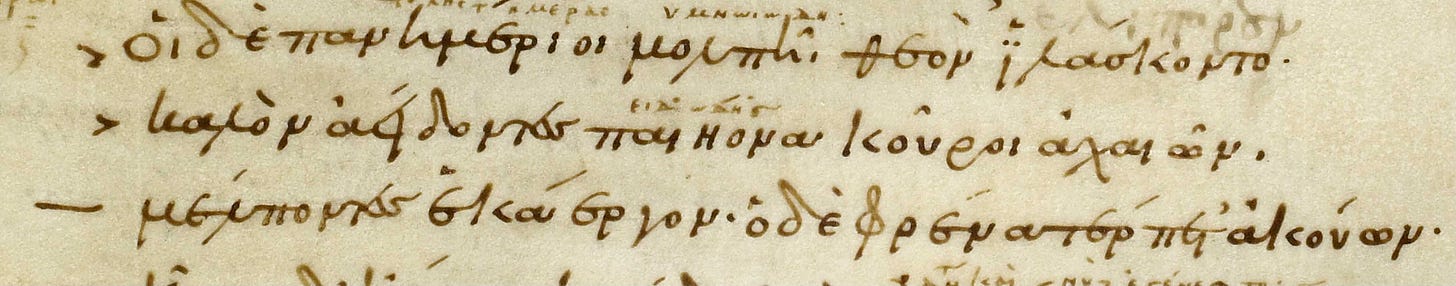 Οἱ δὲ πανημέριοι μολπῆι θεὸν ἱ̈λάσκοντο·
καλὸν ἀείδοντες παιήονα κοῦροι ἀχαιῶν.
μέλποντες ἑκάεργον· ὁ δὲ φρένα τέρπετ' ἀκούων·